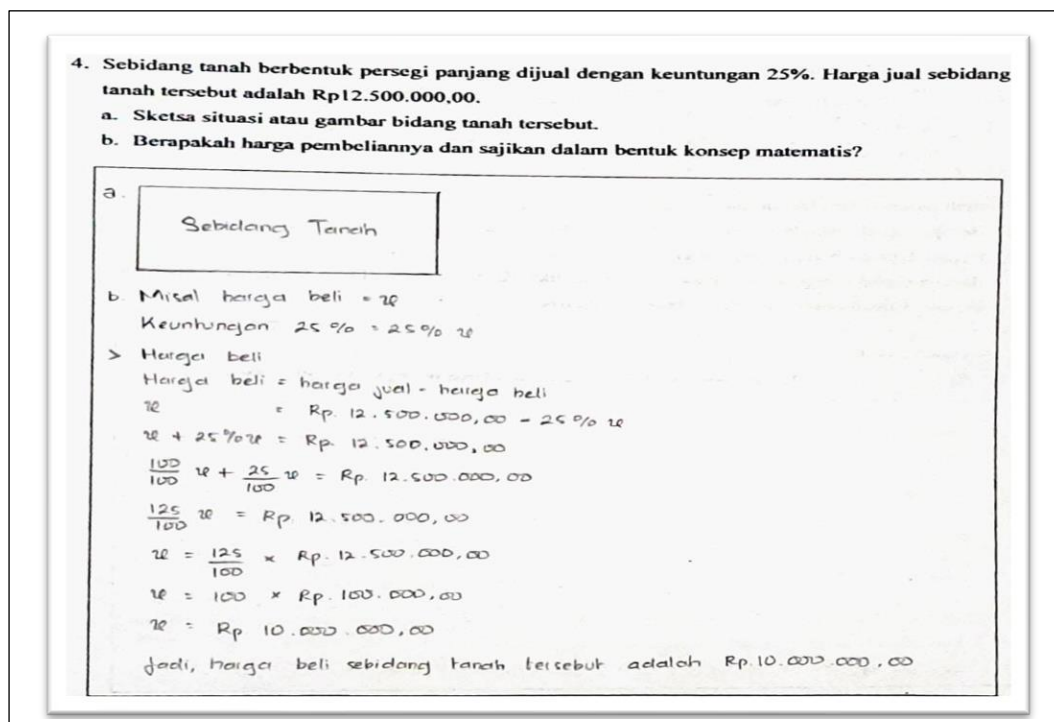 4. Sebidang tanah berbentuk persegi panjang dijual dengan keuntungan 25%. Harga jual sebidang
tanah tersebut adalah Rp12.500.000,00.
a. Sketsa situasi atau gambar bidang tanah tersebut.
b. Berapakah harga pembeliannya dan sajikan dalam bentuk konsep matematis?
a.
Sebidang Tanah
b. Misal harga beli = x
Keuntungan 25% = 25% x
> Harga beli
Harga beli = harga jual - harga beli
x = Rp. 12.500.000,00 - 25% x
x + 25% x = Rp. 12.500.000,00
100/100 x + 25/100 x = Rp. 12.500.000,00
125/100 x = Rp. 12.500.000,00
x = 125/100 × Rp. 12.500.000,00
x = 100 × Rp. 100.000,00
x = Rp 10.000.000,00
Jadi, harga beli sebidang tanah tersebut adalah Rp. 10.000.000,00